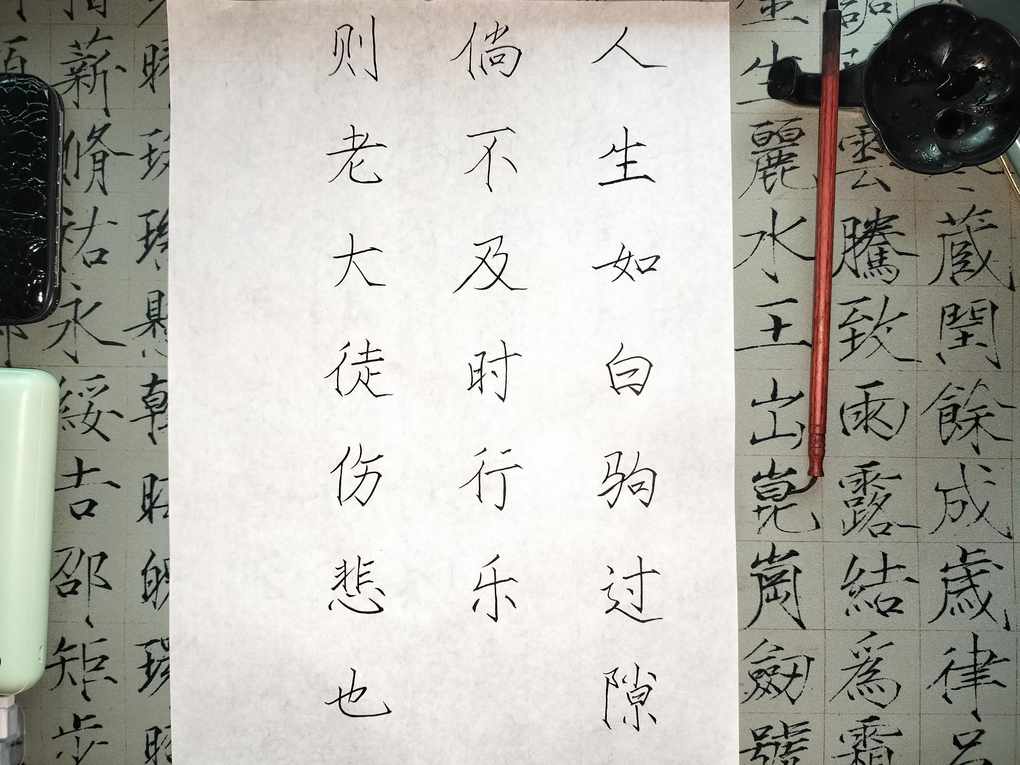 藏閏餘成歲律呂
調雲騰致雨露結爲霜
生麗水王出崑崗劍號
人生如白驹过隙
倘不及时行乐
则老大徒伤悲也
指薪脩祜永綏吉邵矩步